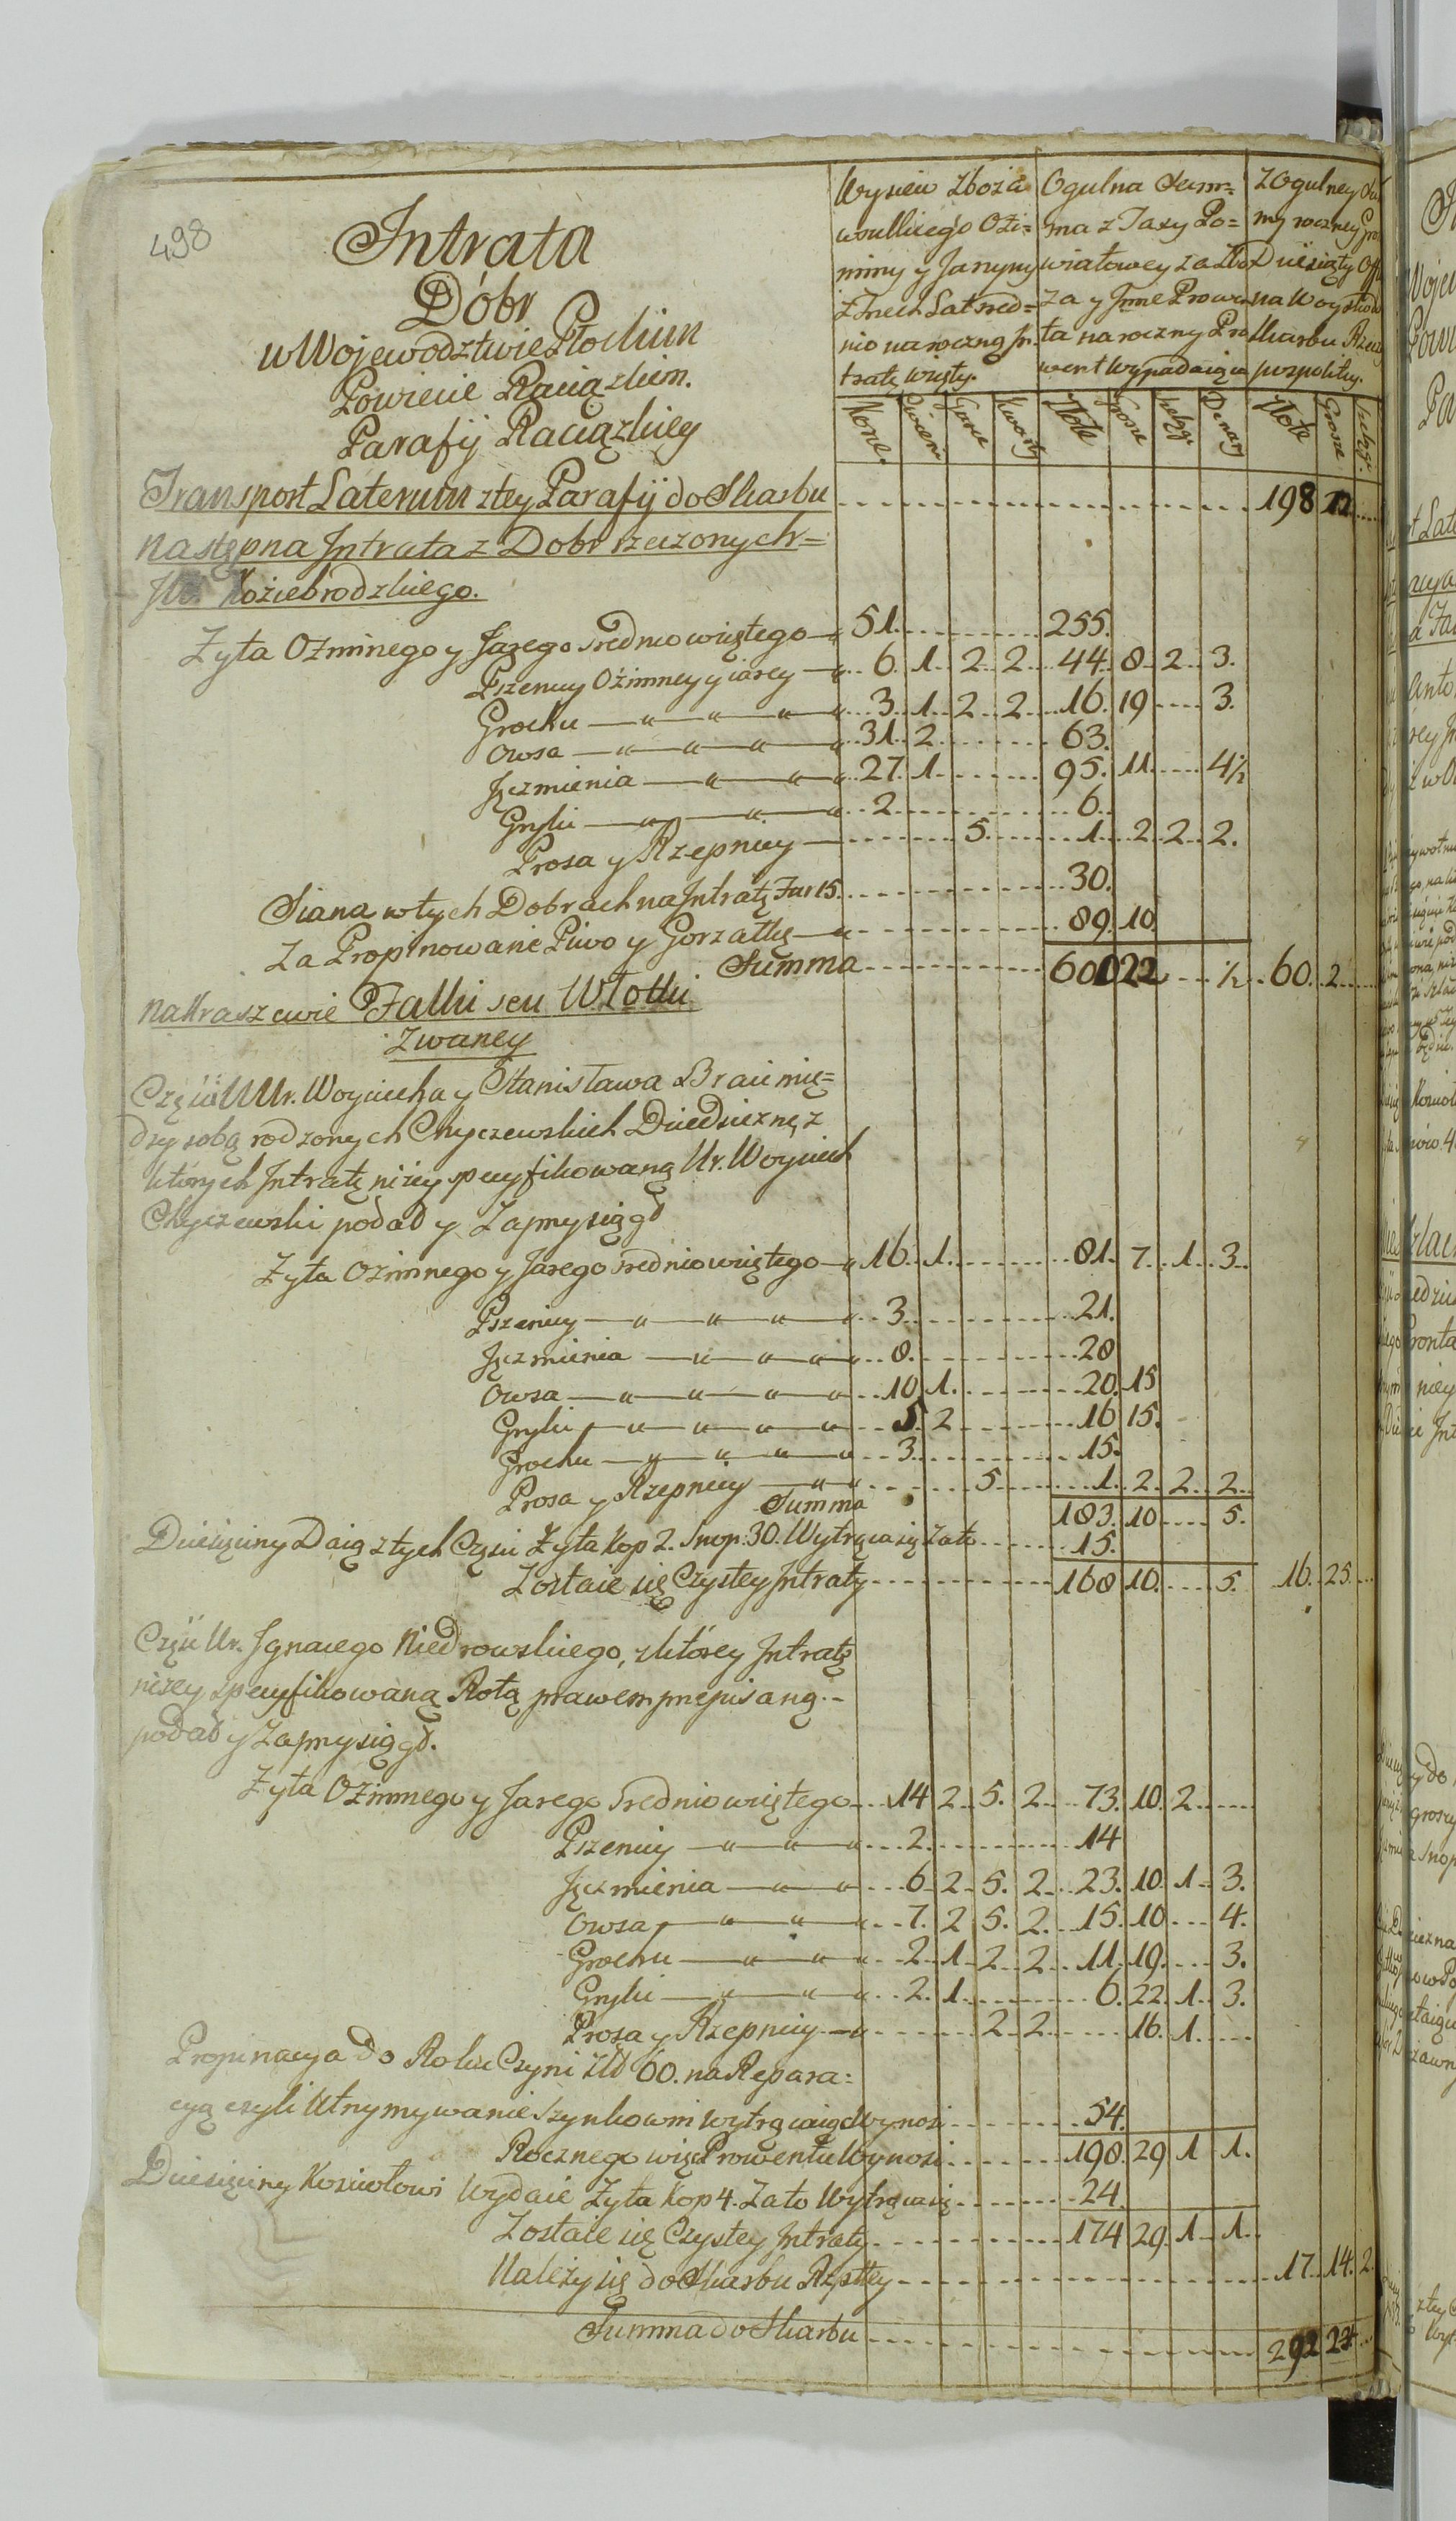 498
Intrata
Dóbr
w Wojewodztwie Płockim
Powiecie Raciązkim.
Parafij Raciązkiey
Wysiew zboża
wszelkiego Ozi=
miny y Jarzyny
z Trzech Lat śred=
nio na roczną In
tratę wzięty.
Ogulna Sum=
ma z Taxy Po=
wiatowey za Zbo
ża y Inne Prowe
ta na roczny Pro
went wypadaiąca
z Ogulney
my roczney
Dziesiąty
na Woysko
Skarbu Rzeczy
pospolitey.
Korce. Ćwierci Garce Kwarty Złote Grosze Szelągi Denary Złote Grosze Szelągi
Transport Laterum z tey Parafij do Skarbu 198
następna Intrata z Dobr rzeczonych=
Koziebrodzkiego.
Zyta Ozimnego y Jarego srednio wziętego 51. 255.
Pszenicy Oźimney y iarey 6. 1. 2. 2. 44. 8. 2. 3.
Grochu 3. 1. 2. 2. 16. 19 3.
Owsa 31. 2. 63.
Jęczmienia 27. 1. 95. 11. 4½
Gryki 2. 6.
Prosa y Rzepnicy 5. 1. 2. 2. 2.
Siana w tych Dobrach na Intratę Fur 15. 30.
Za Propinowanie Piwo y Gorzałkę 89. 10.
Summa 601 22 ½ 60. 2.
na Kraszewie Falki seu Włotki
Zwaney
Częśći UUr. Woyciecha y Stanisława Braci mię=
dzy sobą rodzonych Chyczewskich Dziedziczne, z
których Intratę niżey specyfikowaną Ur. Woyciech
Chyczewski podał y Zaprzysiągł
Zyta Ozimnego y Jarego srednio wziętego 16. 1. 81. 7. 1. 3.
Pszenicy 3. 21.
Jęczmienia 8. 28
Owsa 10. 1. 20. 15
Gryki 5. 2 16 15.
Grochu 3. 15.
Prosa y Rzepnicy 5. 1. 2. 2. 2.
Summa 183. 10 5.
Dziesięciny Daią z tych Częsci Zyta Kop 2. Snop. 30. Wytrąca się Zato 15.
Zostaie się Czystey Intraty 168 10. 5. 16. 25.
Częśc Ur. Ignacego Niedrowskiego, z ktorey Intratę
niżey specyfikowaną Rotą prawem przepisaną
podał y zaprzysiągł.
Zyta Ozimnego y Jarego Srednio wziętego 14 2. 5. 2. 73. 10. 2.
Pszenicy 2. 14
Jęczmienia 6 2. 5. 2. 23. 10. 1. 3.
Owsa 7. 2 5. 2. 15. 10 4.
Grochu 2. 1. 2. 2. 11. 19. 3.
Gryki 2. 1. 6. 22. 1. 3.
Prosa y Rzepnicy 2. 2. 16. 1.
Propinacya do Roku Czyni Złł 60. na Repara=
cyą czyli Utrzymywanie Szynkowni wytrącaiąc Wynosi 54.
Rocznego więc Prowentu Wynosi 198. 29 1 1.
Dziesięciny Kosciołowi Wydaie Zyta Kop 4. Zato Wytrąca się 24.
Zostaie się Czystey Intraty 174 29. 1. 1.
Należy się do Skarbu Rzpltey 17. 14. 2.
Summa do Skarbu 292